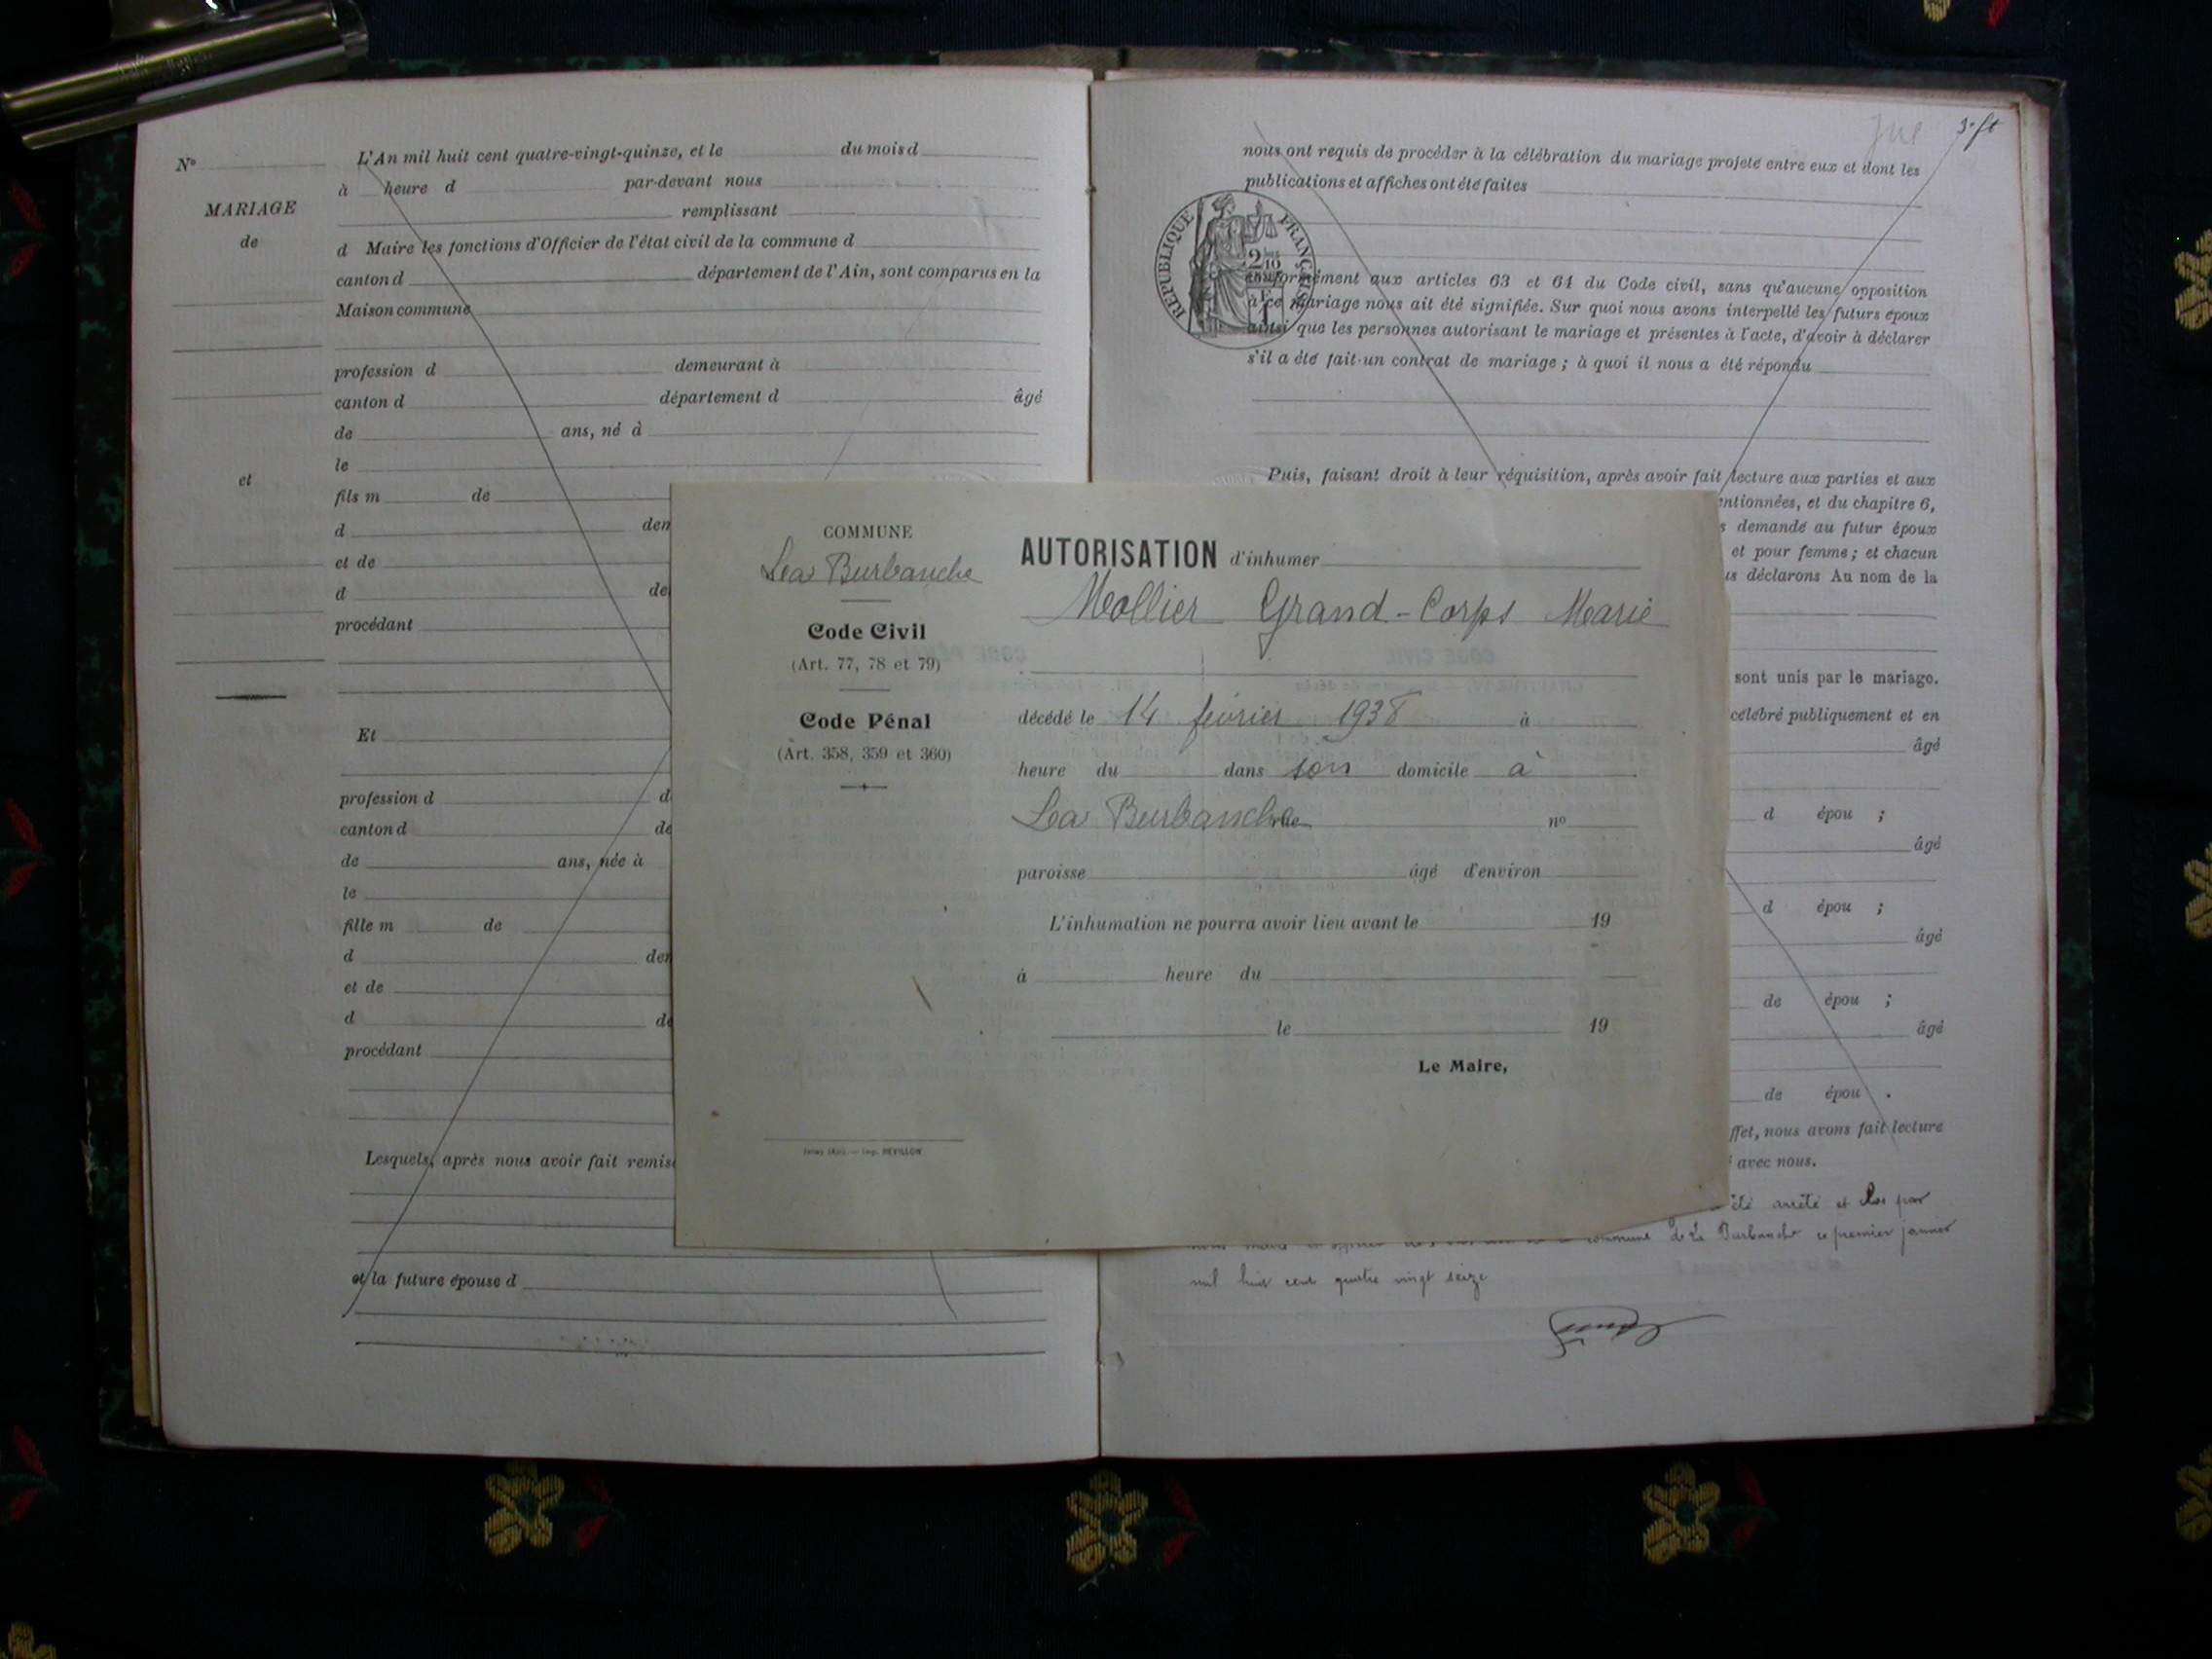 N°
MARIAGE
de
et
L'An mil huit cent quatre-vingt-quinze, et le du mois d
à heure d par-devant nous
remplissant
d Maire les fonctions d'Officier de l'état civil de la commune d
canton d département de l'Ain, sont comparus en la
Maison commune
profession d demeurant à
canton d département d âgé
de ans, né à
le
fils m de
d dem
et de
d de
procédant
Et
profession d d
canton d de
de ans, née à
le
fille m de
d dem
et de
d de
procédant
Lesquels, après nous avoir fait remise
et la future épouse d
3e ft
nous ont requis de procéder à la célébration du mariage projeté entre eux et dont les
publications et affiches ont été faites
REPUBLIQUE FRANÇAISE
2 10
conformément aux articles 63 et 64 du Code civil, sans qu'aucune opposition
à ce mariage nous ait été signifiée. Sur quoi nous avons interpellé les futurs époux
ainsi que les personnes autorisant le mariage et présentes à l'acte, d'avoir à déclarer
s'il a été fait un contrat de mariage ; à quoi il nous a été répondu
Puis, faisant droit à leur réquisition, après avoir fait lecture aux parties et aux
ntionnées, et du chapitre 6,
s demandé au futur époux
et pour femme ; et chacun
us déclarons Au nom de la
sont unis par le mariage.
célébré publiquement et en
âgé
d épou ;
âgé
d épou ;
âgé
de épou ;
âgé
de épou .
ffet, nous avons fait lecture
avec nous.
été arrêté et clos par
commune de La Burbanche ce premier janvier
mil huit cent quatre vingt seize
COMMUNE
La Burbanche
Code Civil
(Art. 77, 78 et 79)
Code Pénal
(Art. 358, 359 et 360)
AUTORISATION d'inhumer
Mollier Grand-Corps Marie
décédé le 14 février 1938 à
heure du dans son domicile à
La Burbanche rue n°
paroisse âgé d'environ
L'inhumation ne pourra avoir lieu avant le 19
à heure du
le 19
Le Maire,
Imp. REVILLON